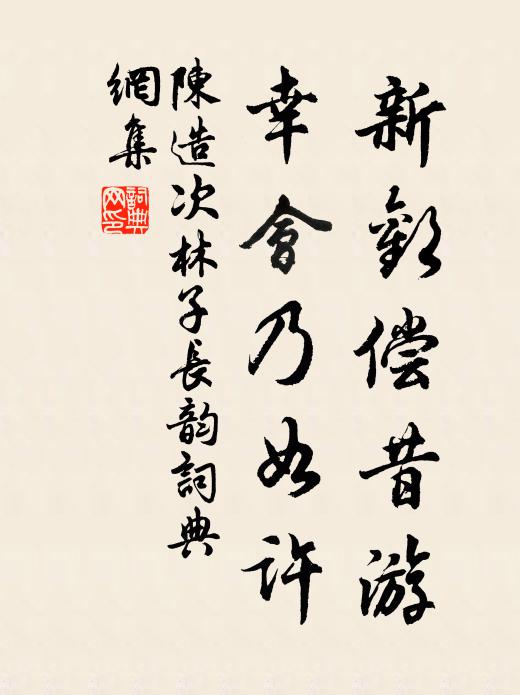 新歡偿昔游
幸會乃如许
陳造次林子長韵詞典
網集
詞典網印